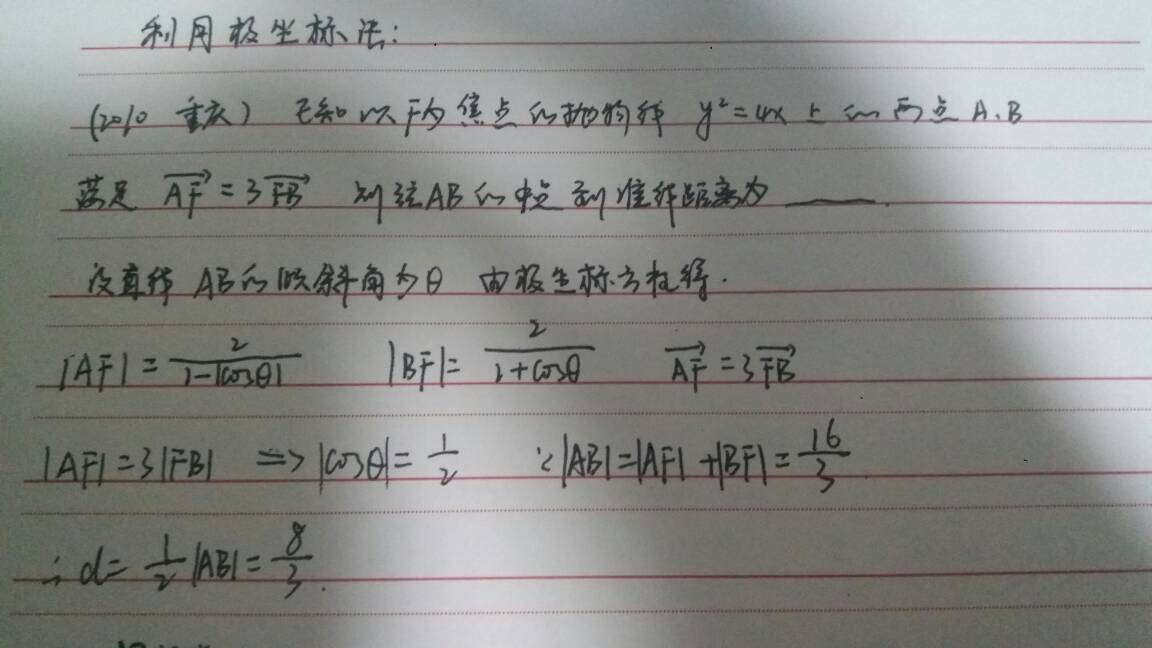 利用极坐标法:
(2010 重庆) 已知以F为焦点的抛物线 y²=4x上的两点A、B
满足 $\overrightarrow{AF}$=3$\overrightarrow{FB}$ 则弦AB的中点到准线距离为____.
设直线AB的倾斜角为θ 由极坐标方程得.
|AF|=2/(1-|cosθ|) |BF|=2/(1+cosθ) $\overrightarrow{AF}$=3$\overrightarrow{FB}$
|AF|=3|FB| ⟹ |cosθ|=1/2 ∵|AB|=|AF|+|BF|=16/3
∴d=1/2|AB|=8/3.